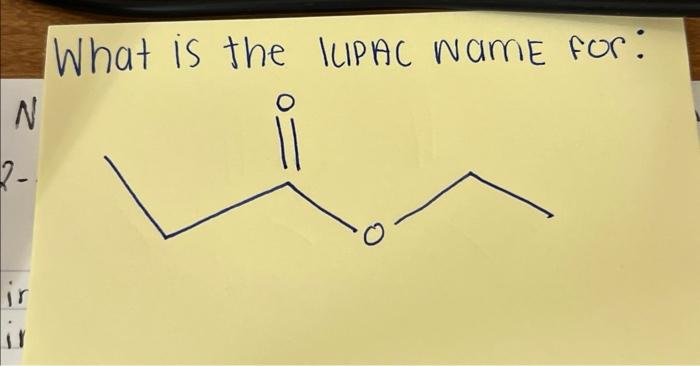 What is the IUPAC NAME for:
N
2-
O
O
ir